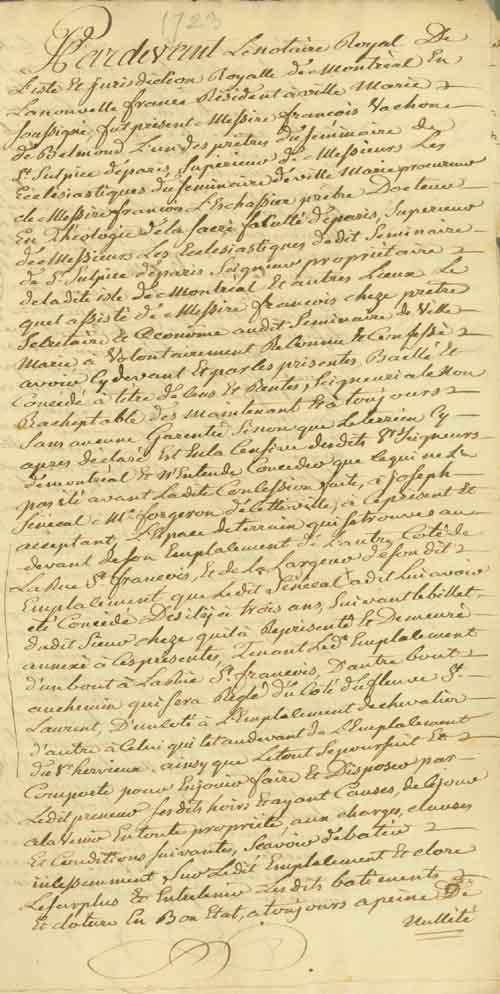 1723
Pardevant Le notaire Royal De
L'isle Et Jurisdiction Royalle de Montréal En
La nouvelle france Résident à ville Marie
soussigné fut présent Messire françois Vachon
de Belmond L'un des prêtres du séminaire de
St Sulpice de paris, Supérieur de Messieurs Les
Ecclésiastiques du séminaire de ville Marie procureur
de Messire francois L'Eschassier prêtre Docteur
En Théologie de la sacré faculté de paris, Superieur
de Messieurs Les Ecclesiastiques dudit Seminaire
de St Sulpice de paris Seigneur propriétaire
de la dite isle de Montréal Et autres Lieux Le
quel assisté de Messire francois cheze prêtre
Secretaire Et Œconome audit Seminaire de Ville
Marie a Volontairement Reconnu Et Confessé
avoir Cy devant Et par les présentes Baillé Et
Concédé à titre de Cens Et Rentes, Seigneuriale Non
Racheptable dès Maintenant Et à toujours
Sans aucune Garentie Sinon que Le terrein Cy
après déclaré Est En la Censive desdits Srs Seigneurs
de montréal Et N'Entendre Concéder que ce qui ne L'a
pas été avant La dite Concession faite, à Joseph
Sénécal Me forgeron de cette ville, à ce présent Et
acceptant, L'Espace de terrain qui se trouve au
devant de son Emplacement de L'autre Coté de
La Rue St francois, Et de La Largeur de son dit
Emplacement que Ledit Sénécal a dit Lui avoir
été Concédé Dès il y a trois ans, Suivant le billet,
dudit Sieur cheze qu'il a Représenté Et Demeuré
annexé à Ces présentes, Tenant Led. Emplacement
d'un bout à La Rue St francois, D'autre bout
au chemin qui sera Réglé du Coté du fleuve St
Laurent, D'un coté à L'Emplacement de chevalier
d'autre à Celui qui Est au devant de L'Emplacement
du Sr hervieux, ainsy que Le tout Se poursuit Et
Comporte pour En jouir faire Et Disposer par
Ledit preneur ses dits hoirs Et ayant Causes, de ce jour
à La Venir En toute propriété, aux charges, clauses
Et Conditions suivantes, Scavoir de batir
incessemment Sur Ledit Emplacement Et clore
Le surplus Et Entretenir Les dits batiments
Et cloture En Bon Etat, à toujours à peine De
Nullité